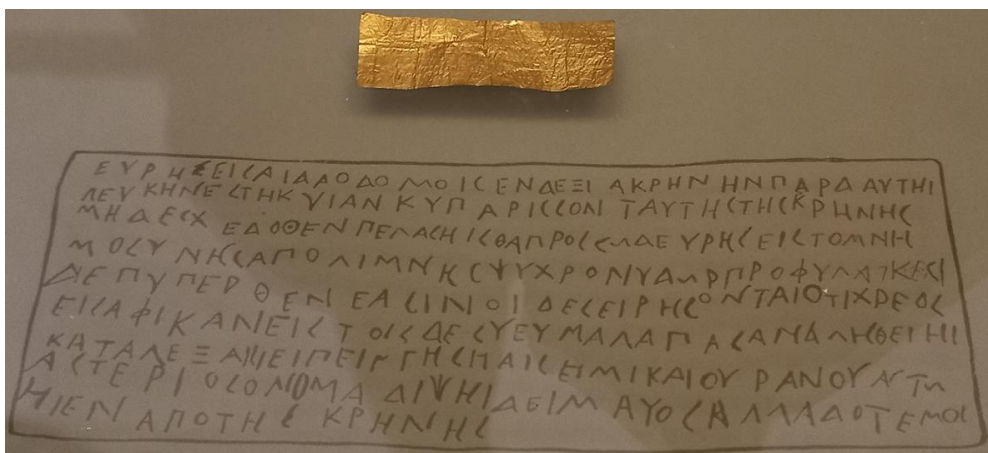 ΕΥΡΗϹΕΙϹΑΙΔΑΟΔΟΜΟΙϹΕΝΔΕΞΙΑΚΡΗΝΗΝΠΑΡΔΑΥΤΗΙ
ΛΕΥΚΗΝΕϹΤΗΚΥΙΑΝΚΥΠΑΡΙϹϹΟΝΤΑΥΤΗϹΤΗϹΚΡΗΝΗϹ
ΜΗΔΕϹΧΕΔΟΘΕΝΠΕΛΑϹΗΙϹΘΑΠΡΟϹϹΩΔΕΥΡΗϹΕΙϹΤΟΜΝΗ
ΜΟϹΥΝΗϹΑΠΟΛΙΜΝΗϹΨΥΧΡΟΝΥΔΩΡΠΡΟΦΥΛΑΚΕϹ
ΔΕΠΥΠΕΡΘΕΝΕΑϹΙΝΟΙΔΕϹΕΙΡΗϹΟΝΤΑΙΟΤΙΧΡΕΟϹ
ΕΙϹΑΦΙΚΑΝΕΙϹΤΟΙϹΔΕϹΥΕΥΜΑΛΑΠΑϹΑΝΑΛΗΘΕΙΗΝ
ΚΑΤΑΛΕΞΑΙΕΙΠΕΙΝΓΗϹΠΑΙϹΕΙΜΙΚΑΙΟΥΡΑΝΟΥΑϹΤ
ΑϹΤΕΡΙΟϹΟΝΟΜΑΔΙΨΗΙΔΕΙΜΑΥΟϹΑΛΛΑΔΟΤΕΜΟΙ
ΠΙΕΝΑΠΟΤΗϹΚΡΗΝΗϹ